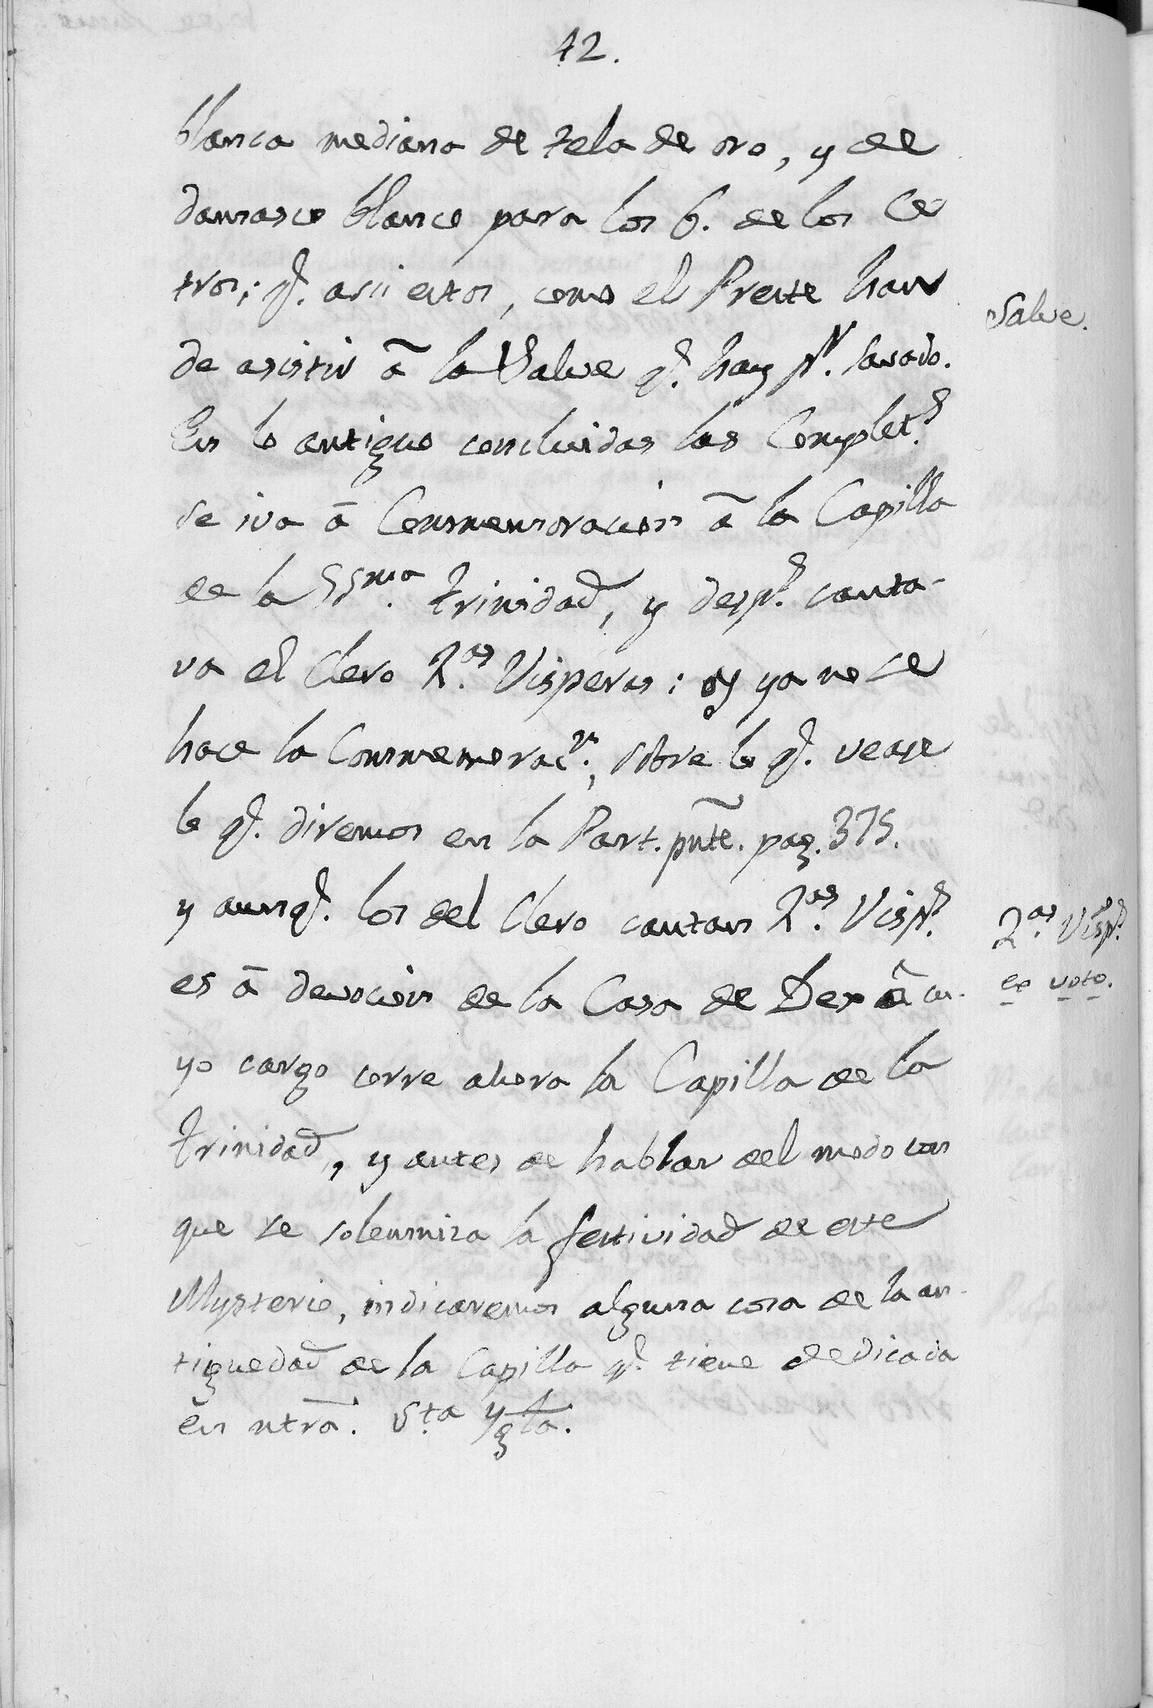 42.
blanca mediana de tela de oro, y de
damasco blanco para los 6. de los Ce
tros; q. assi estos, como el Preste han
de asistir â la Salve q. hay pr. Savado.
Salve.
En lo antiguo concluidas las Complets.
se iva â Conmemoracion â la Capilla
de la SSma. Trinidad, y desps. canta-
va el Clero 2.as Visperas; oy ya no se
hace la Conmemoracn., sobre lo q. vease
lo q. diremos en la Part. pnte. pag. 375.
y aunq. los del Clero cantan 2.as Visps.
2.as Visps.
ex voto.
es â devocion de la Casa de Dex â cu-
yo cargo corre ahora la Capilla de la
Trinidad, y antes de hablar del modo con
que se solemniza la festividad de este
Mysterio, indicaremos alguna cosa de la an-
tiguedad de la Capilla q. tiene dedicada
en ntra. Sta Ygla.